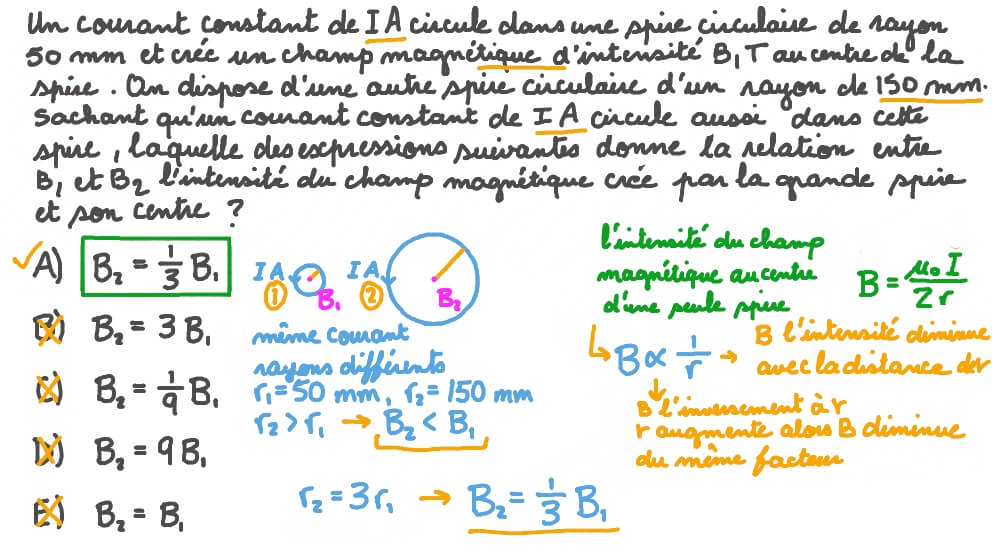 Un courant constant de I A circule dans une spire circulaire de rayon
50 mm et crée un champ magnétique d'intensité B₁ T au centre de la
spire. On dispose d'une autre spire circulaire d'un rayon de 150 mm.
Sachant qu'un courant constant de I A circule aussi dans cette
spire, laquelle des expressions suivantes donne la relation entre
B₁ et B₂ l'intensité du champ magnétique crée par la grande spire
et son centre ?
A) B₂ = 1/3 B₁
B) B₂ = 3 B₁
C) B₂ = 1/9 B₁
D) B₂ = 9 B₁
E) B₂ = B₁
I A ① B₁
I A ② B₂
même courant
rayons différents
r₁ = 50 mm, r₂ = 150 mm
r₂ > r₁ → B₂ < B₁
r₂ = 3r₁ → B₂ = 1/3 B₁
l'intensité du champ
magnétique au centre
d'une seule spire
B = μ₀ I / 2 r
B ∝ 1/r → B l'intensité diminue
avec la distance de r
B l'inversement à r
r augmente alors B diminue
du même facteur